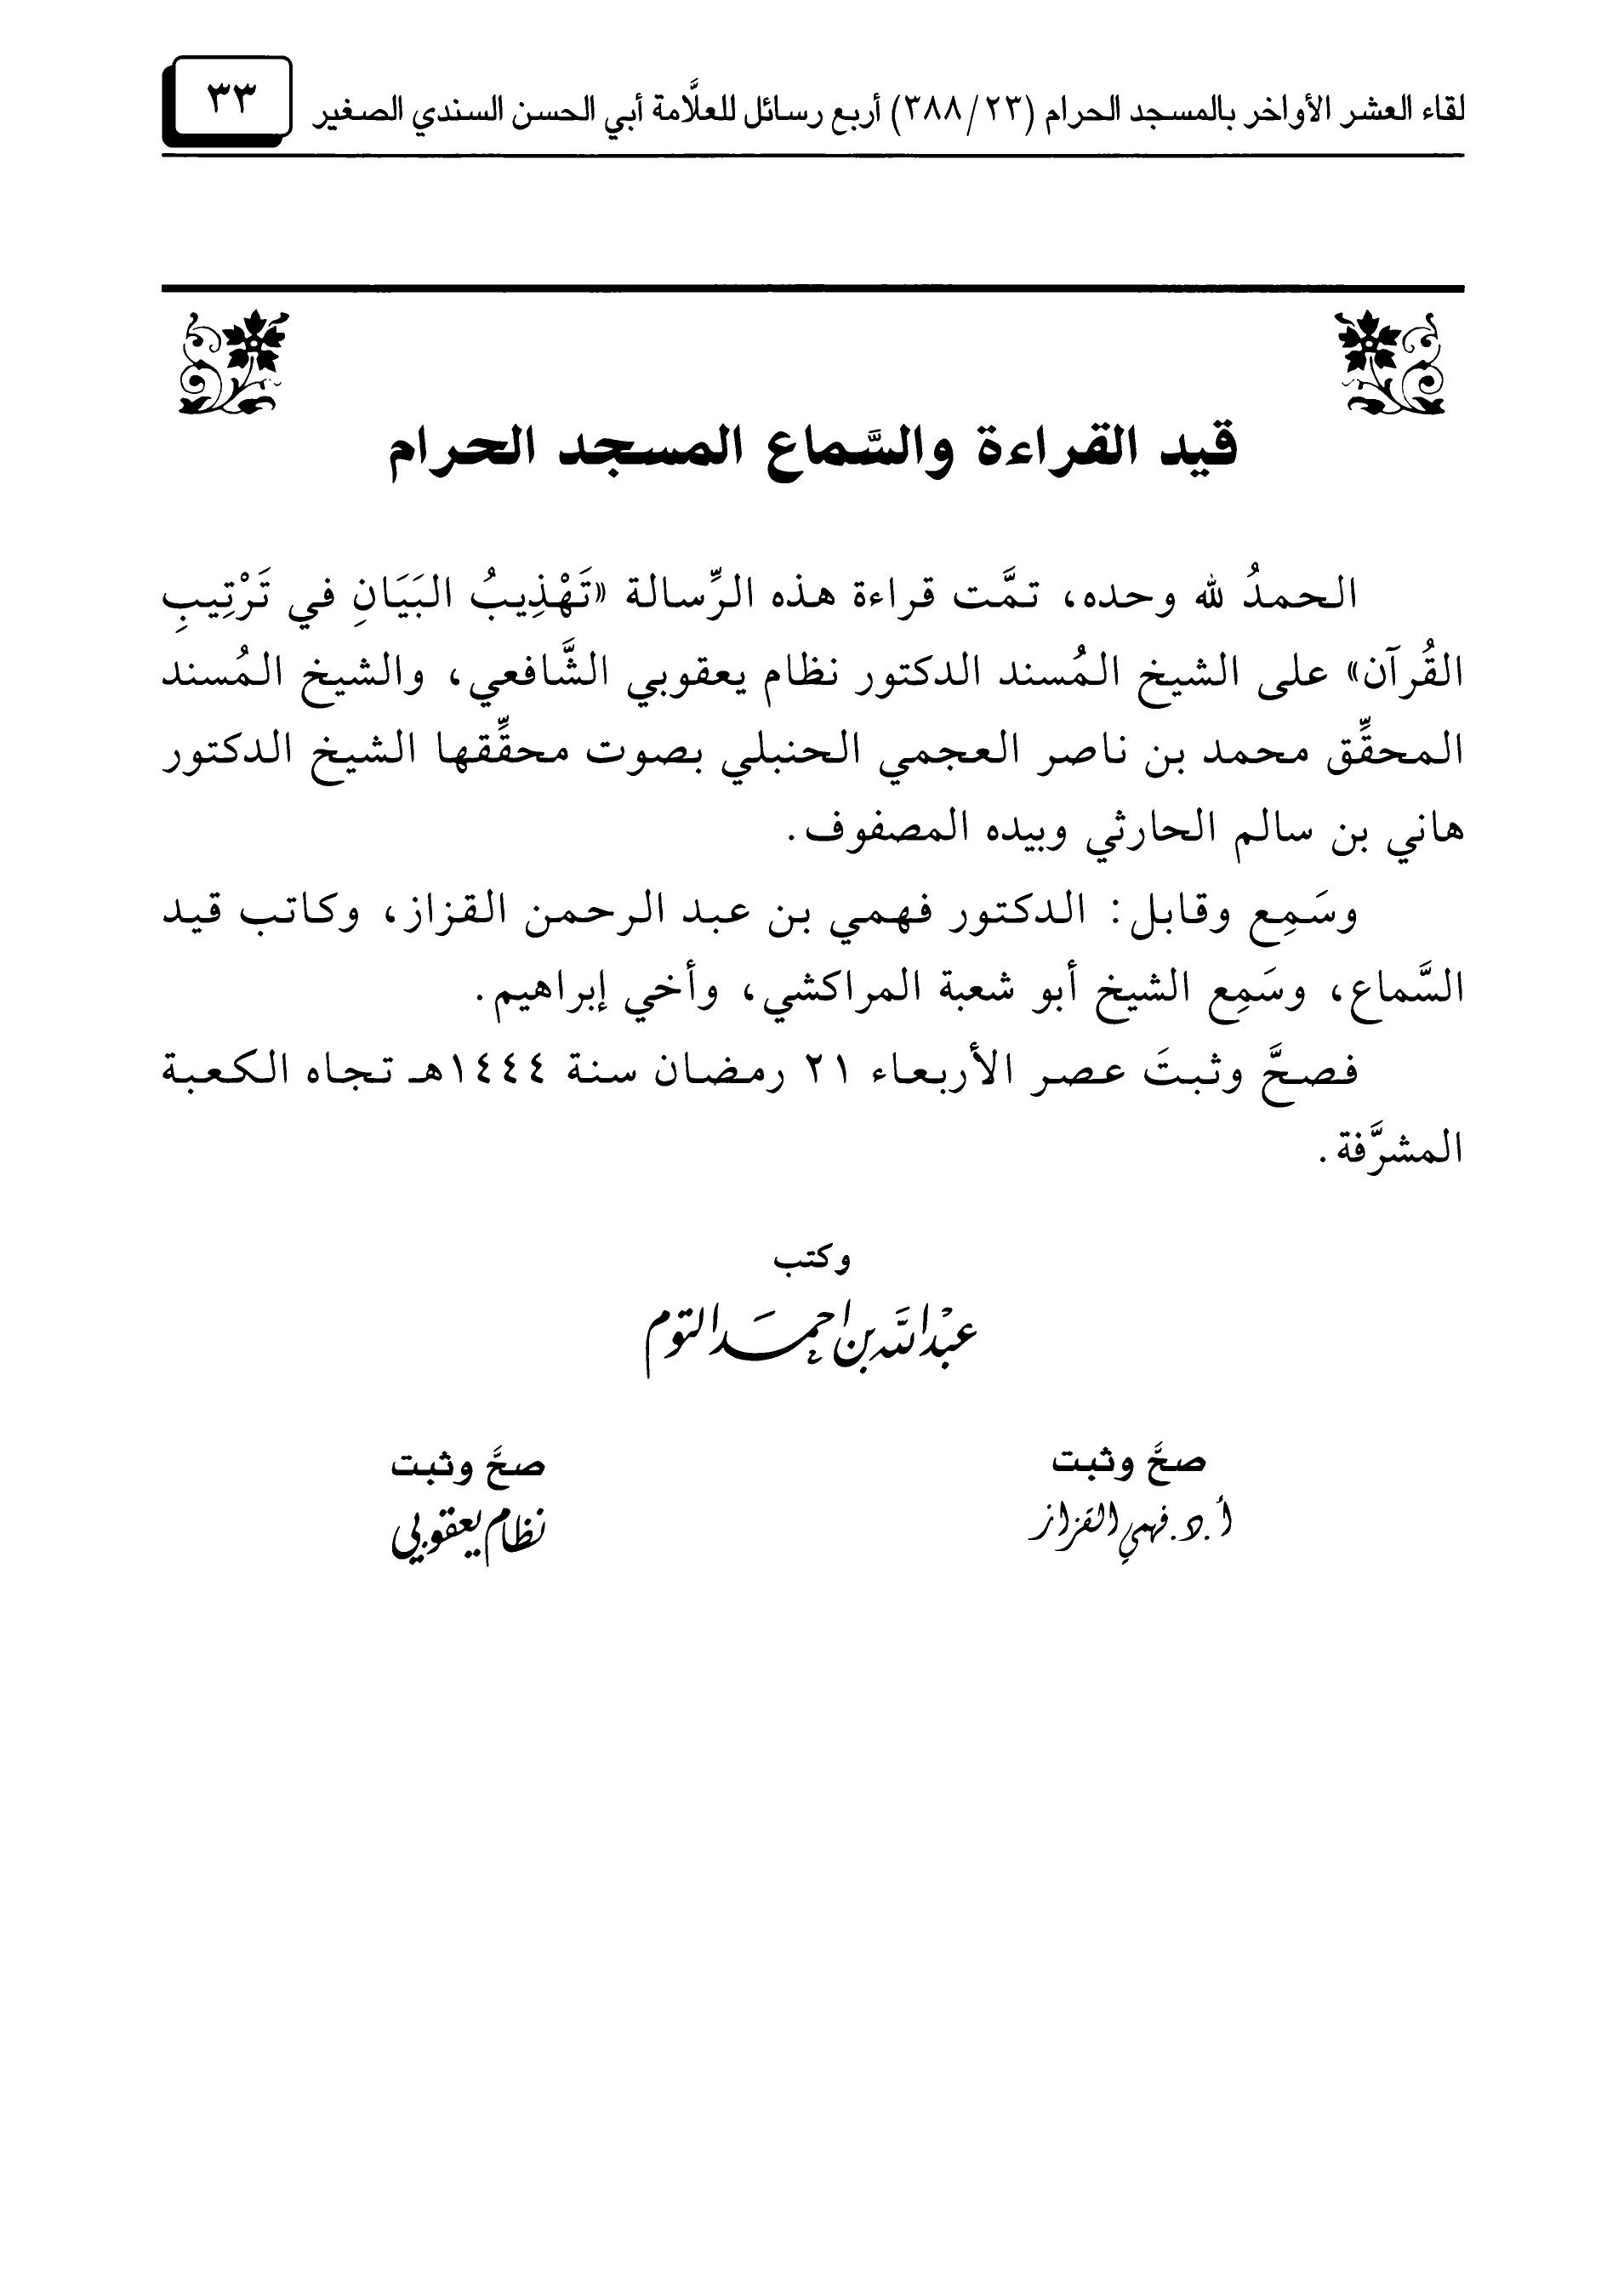 لقاء العشر الأواخر بالمسجد الحرام (٢٣/ ٣٨٨) أربع رسائل للعلَّامة أبي الحسن السندي الصغير ٣٣
قيد القراءة والسَّماع المسجد الحرام
الحمدُ لله وحده، تمَّت قراءة هذه الرِّسالة «تَهْذِيبُ البَيَانِ في تَرْتِيبِ
القُرآن» على الشيخ المُسند الدكتور نظام يعقوبي الشَّافعي، والشيخ المُسند
المحقِّق محمد بن ناصر العجمي الحنبلي بصوت محقِّقها الشيخ الدكتور
هاني بن سالم الحارثي وبيده المصفوف.
وسَمِع وقابل: الدكتور فهمي بن عبد الرحمن القزاز، وكاتب قيد
السَّماع، وسَمِع الشيخ أبو شعبة المراكشي، وأخي إبراهيم.
فصحَّ وثبتَ عصر الأربعاء ٢١ رمضان سنة ١٤٤٤هـ تجاه الكعبة
المشرَّفة.
وكتب
عبْد اللَّه بن احمَد التوم
صحَّ وثبت
أ.د. فهمي القزاز
صحَّ وثبت
نظام يعقوبي